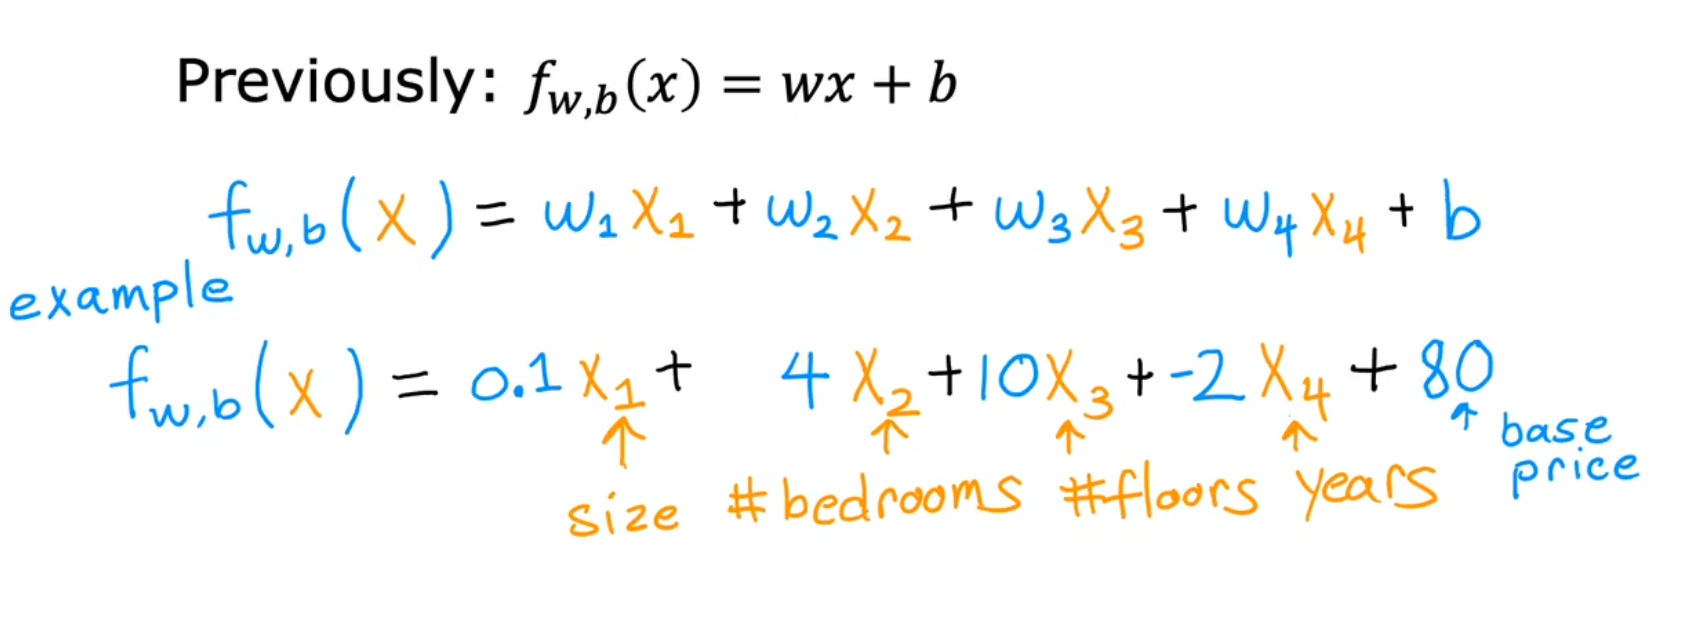 Previously: f_{w,b}(x) = wx + b
f_{w,b}(x) = w₁x₁ + w₂x₂ + w₃x₃ + w₄x₄ + b
example
f_{w,b}(x) = 0.1x₁ + 4x₂ + 10x₃ + -2x₄ + 80
↑ ↑ ↑ ↑ ↑ base price
size #bedrooms #floors years